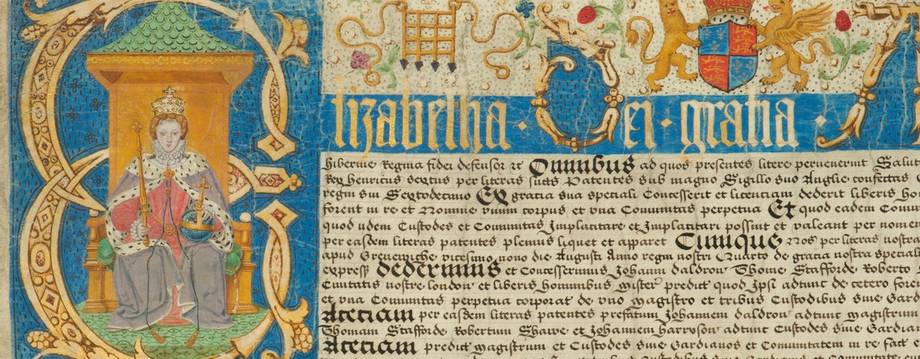 Elizabetha · Dei · gratia ·
hibernie Regina fidei defensor &c Omnibus ad quos presentes litere pervenerint Salut
Rex henricus sextus per literas suas Patentes sub magno Sigillo suo Anglie confectas
regni sui Sextodecimo Ex gratia sua speciali Concesserit et licentiam dederit liberis ho
forent in re et Nomine unum corpus et una Comunitas perpetua Et quod eadem Comu
quod iidem Custodes et Comunitas Implacitare et Implacitari possint et valeant per nom
per easdem literas patentes plenius liquet et apparet Cumque nos per literas nostra
apud Grenewiche vicesimo nono die Augusti Anno regni nostri Quarto de gratia nostra special
express dederimus et Concesserimus Johanni daldron Thome Stafforde Roberto
Civitatis nostre london et liberis hominibus mister predict quod Ipsi adtunc de cetero fore
et una Comunitas perpetua corporat de uno magistro et tribus Custodibus sive Gard
Aceciam per easdem literas patentes prefatum Johannem daldron adtunc magistrum
Thomam Stafforde Robertum Shawe et Johannem harryson adtunc Custodes sive Gardia
Aceciam predict magistrum et Custodes sive Gardianos et Comunitatem in re fact